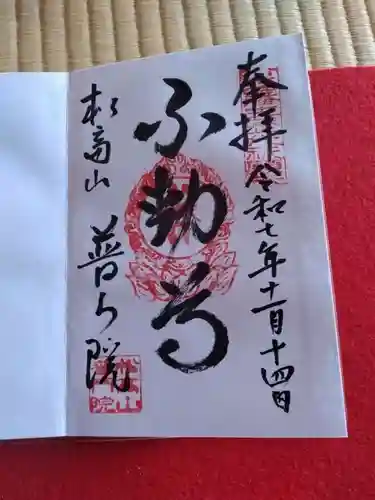 奉拝 令和七年十一月十四日
不動尊
松高山 普門院